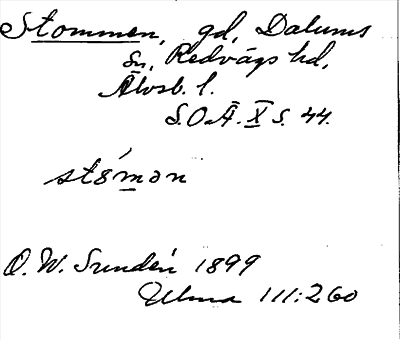 Stommen, gd, Dalums
sn, Redvägs hd,
Älvsb. l.
S.O.Ä. X s. 44.
stómən
O. W. Sundén 1899
Ulma 111:260